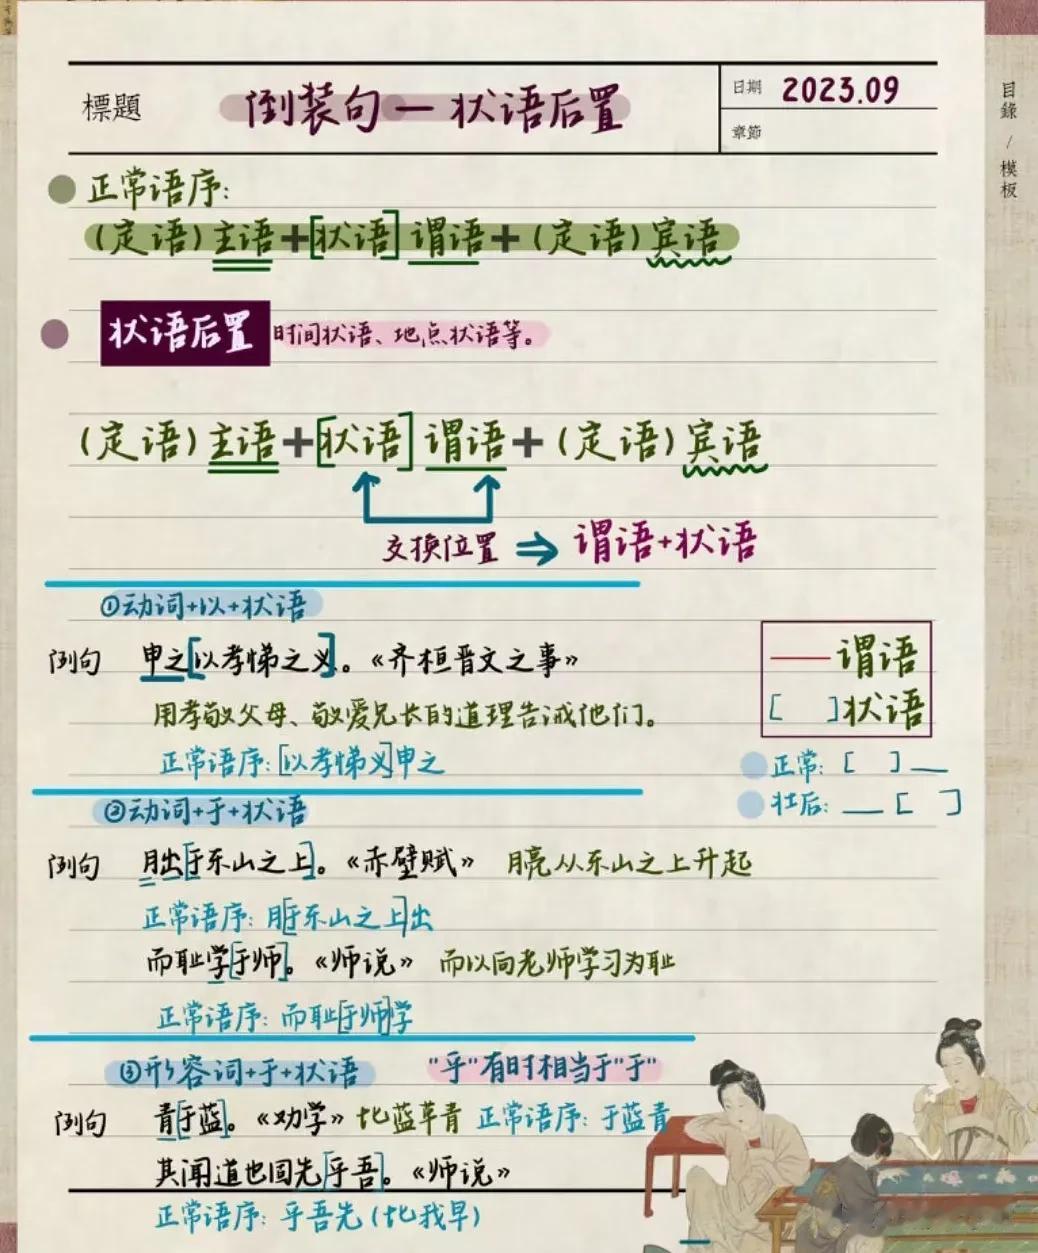 標題 倒装句一状语后置
日期 2023.09
章節
目錄 / 模板
正常语序:
(定语)主语+[状语]谓语+(定语)宾语
状语后置 时间状语、地点状语等。
(定语)主语+[状语]谓语+(定语)宾语
交换位置 ⇒ 谓语+状语
①动词+以+状语
例句 申之[以孝悌之义]。《齐桓晋文之事》
用孝敬父母、敬爱兄长的道理告诫他们。
正常语序:[以孝悌义]申之
—— 谓语
[ ]状语
正常: [ ]__
壮后: __[ ]
②动词+于+状语
例句 月出[于东山之上]。《赤壁赋》 月亮从东山之上升起
正常语序: 月[于东山之上]出
而耻学[于师]。《师说》 而以向老师学习为耻
正常语序: 而耻[于师]学
③形容词+于+状语 "乎"有时相当于"于"
例句 青[于蓝]。《劝学》 比蓝草青 正常语序: 于蓝青
其闻道也固先[乎吾]。《师说》
正常语序: 乎吾先(比我早)